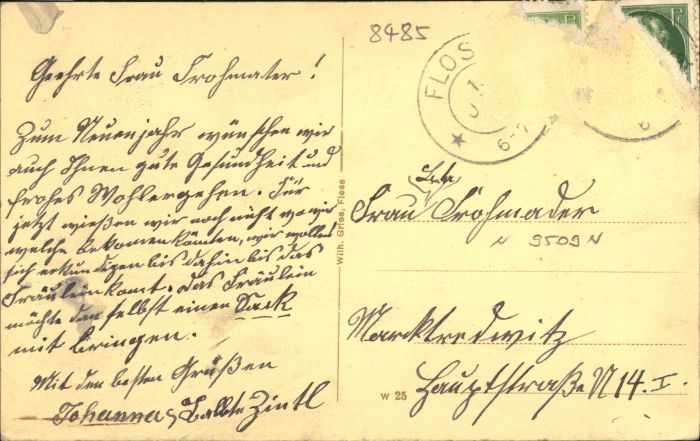 8485
FLOSS
6-7
Geehrte Frau Frohmater!
Zum Neuenjahr wünschen wir
auch Ihnen gute Gesundheit und
frohes Wohlergehen. Für
jetzt wießen wir noch nicht wo wir
welche bekomen könten, wir wollen
sich erkundigen bis dahin bis das
Fräulein komt. das Fräulein
möchte dan selbst einen Sack
mit bringen.
Mit den besten Grüßen
Johanna, Babte Zintl
Wilh. Gries, Floss
Frau Fröhmader
N 9509 N
Marcktredwitz
W 25
Hauptstraße N 14. I.